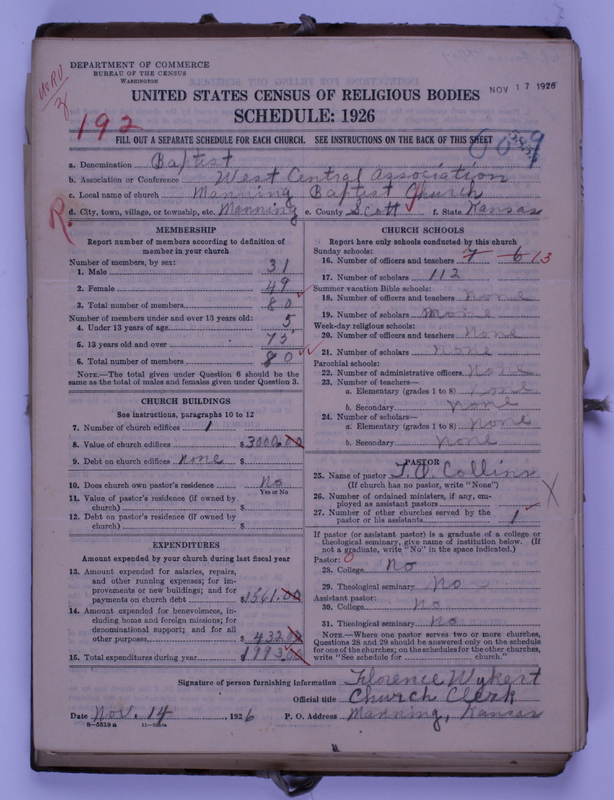 DEPARTMENT OF COMMERCE
BUREAU OF THE CENSUS
WASHINGTON
UNITED STATES CENSUS OF RELIGIOUS BODIES
NOV 17 1926
SCHEDULE: 1926
192
FILL OUT A SEPARATE SCHEDULE FOR EACH CHURCH. SEE INSTRUCTIONS ON THE BACK OF THIS SHEET
a. Denomination Baptist
b. Association or Conference West Central Association
c. Local name of church Manning Baptist Church
d. City, town, village, or township, etc. Manning e. County Scott f. State Kansas
R.
MEMBERSHIP
Report number of members according to definition of
member in your church
Number of members, by sex:
1. Male 31
2. Female 49
3. Total number of members 80
Number of members under and over 13 years old:
4. Under 13 years of age 5
5. 13 years old and over 75
6. Total number of members 80
NOTE.—The total given under Question 6 should be the
same as the total of males and females given under Question 3.
CHURCH BUILDINGS
See instructions, paragraphs 10 to 12
7. Number of church edifices 1
8. Value of church edifices $3000.00
9. Debt on church edifices none $
10. Does church own pastor's residence No
Yes or No
11. Value of pastor's residence (if owned by
church) $
12. Debt on pastor's residence (if owned by
church) $
EXPENDITURES
Amount expended by your church during last fiscal year
13. Amount expended for salaries, repairs,
and other running expenses; for im-
provements or new buildings; and for
payments on church debt $1561.00
14. Amount expended for benevolences, in-
cluding home and foreign missions; for
denominational support; and for all
other purposes $432.00
15. Total expenditures during year $1993.00
CHURCH SCHOOLS
Report here only schools conducted by this church
Sunday schools:
16. Number of officers and teachers 7 6 13
17. Number of scholars 112
Summer vacation Bible schools:
18. Number of officers and teachers None
19. Number of scholars None
Week-day religious schools:
20. Number of officers and teachers None
21. Number of scholars None
Parochial schools:
22. Number of administrative officers None
23. Number of teachers—
a. Elementary (grades 1 to 8) None
b. Secondary None
24. Number of scholars—
a. Elementary (grades 1 to 8) None
b. Secondary None
PASTOR
25. Name of pastor T. O. Collins
(If church has no pastor, write "None")
26. Number of ordained ministers, if any, em-
ployed as assistant pastors
27. Number of other churches served by the
pastor or his assistants 1
If pastor (or assistant pastor) is a graduate of a college or
theological seminary, give name of institution below. (If
not a graduate, write "No" in the space indicated.)
Pastor: 0
28. College No
29. Theological seminary No
Assistant pastor:
30. College No
31. Theological seminary No
NOTE.—Where one pastor serves two or more churches,
Questions 28 and 29 should be answered only on the schedule
for one of the churches; on the schedules for the other churches,
write "See schedule for church."
Signature of person furnishing information Florence Wykert
Official title Church Clerk
Date Nov. 14, 1926 P. O. Address Manning, Kansas
8—5518 a